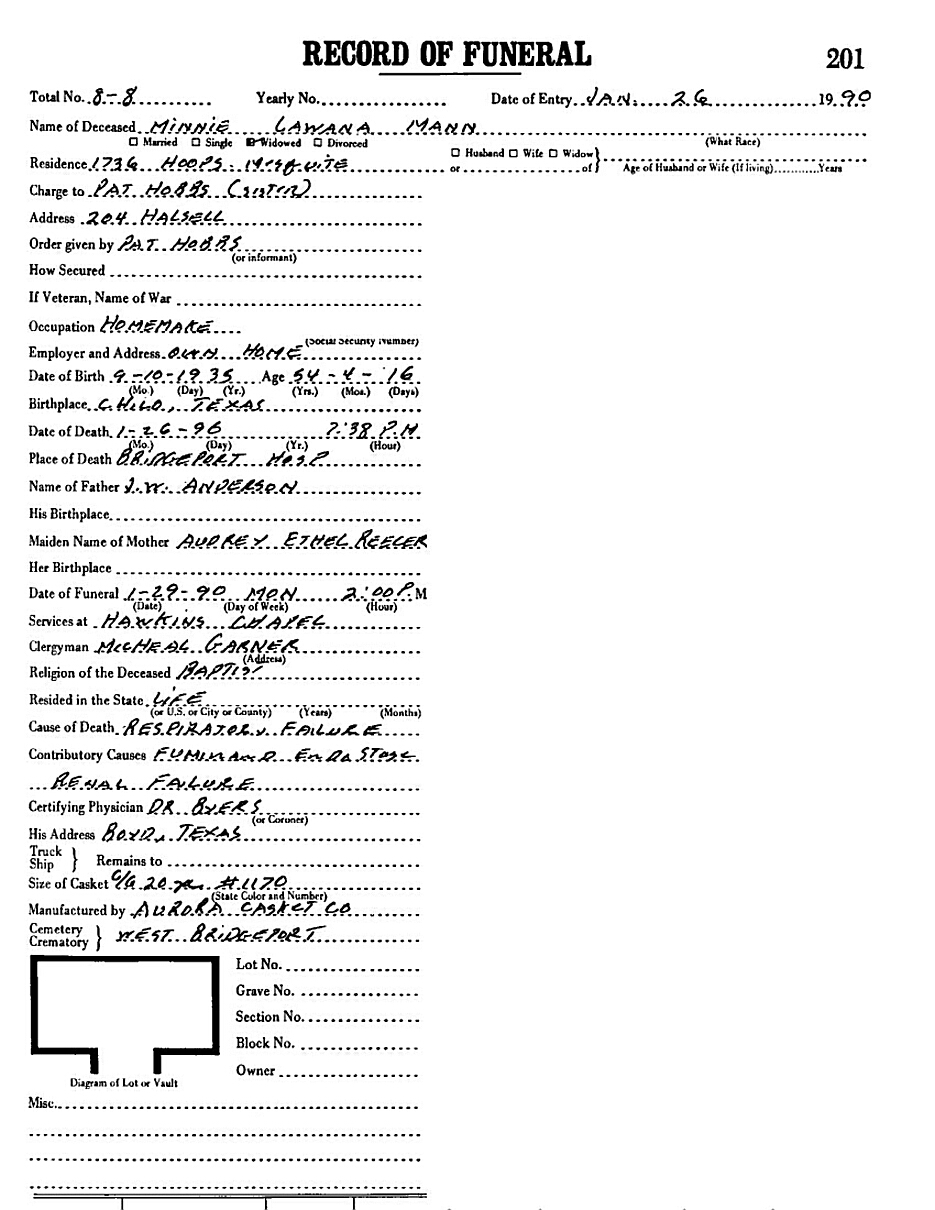 RECORD OF FUNERAL 201
Total No. 8-8 Yearly No. Date of Entry JAN. 26 1990
Name of Deceased MINNIE LAWANA MANN
Married Single Widowed Divorced (What Race)
Residence 1736 HOOPS. Husband Wife Widow
or of Age of Husband or Wife (If living) Years
Charge to PAT HOBBS (SISTER)
Address 204 HALSELL
Order given by PAT HOBBS
(or informant)
How Secured
If Veteran, Name of War
Occupation HOMEMAKE
(Social Security Number)
Employer and Address OWN HOME
Date of Birth 9-10-1935 Age 54-4-16
(Mo.) (Day) (Yr.) (Yrs.) (Mos.) (Days)
Birthplace CHICO, TEXAS
Date of Death 1-26-90 7:38 P.M
(Mo.) (Day) (Yr.) (Hour)
Place of Death BRIDGEPORT HOSP
Name of Father J.W. ANDERSON
His Birthplace
Maiden Name of Mother AUDREY ETHEL REECER
Her Birthplace
Date of Funeral 1-29-90 MON 2:00 P.M
(Date) (Day of Week) (Hour)
Services at HAWKINS CHAPEL
Clergyman MICHEAL GARNER
(Address)
Religion of the Deceased BAPTIST
Resided in the State LIFE
(or U.S. or City or County) (Years) (Months)
Cause of Death RESPIRATORY FAILURE
Contributory Causes STAGE
RENAL FAILURE
Certifying Physician DR BYERS
(or Coroner)
His Address BOYD, TEXAS
Truck
Ship } Remains to
Size of Casket 20 #1170
(State Color and Number)
Manufactured by AURORA CASKET CO
Cemetery
Crematory } WEST BRIDGEPORT
Lot No.
Grave No.
Section No.
Block No.
Owner
Diagram of Lot or Vault
Misc.